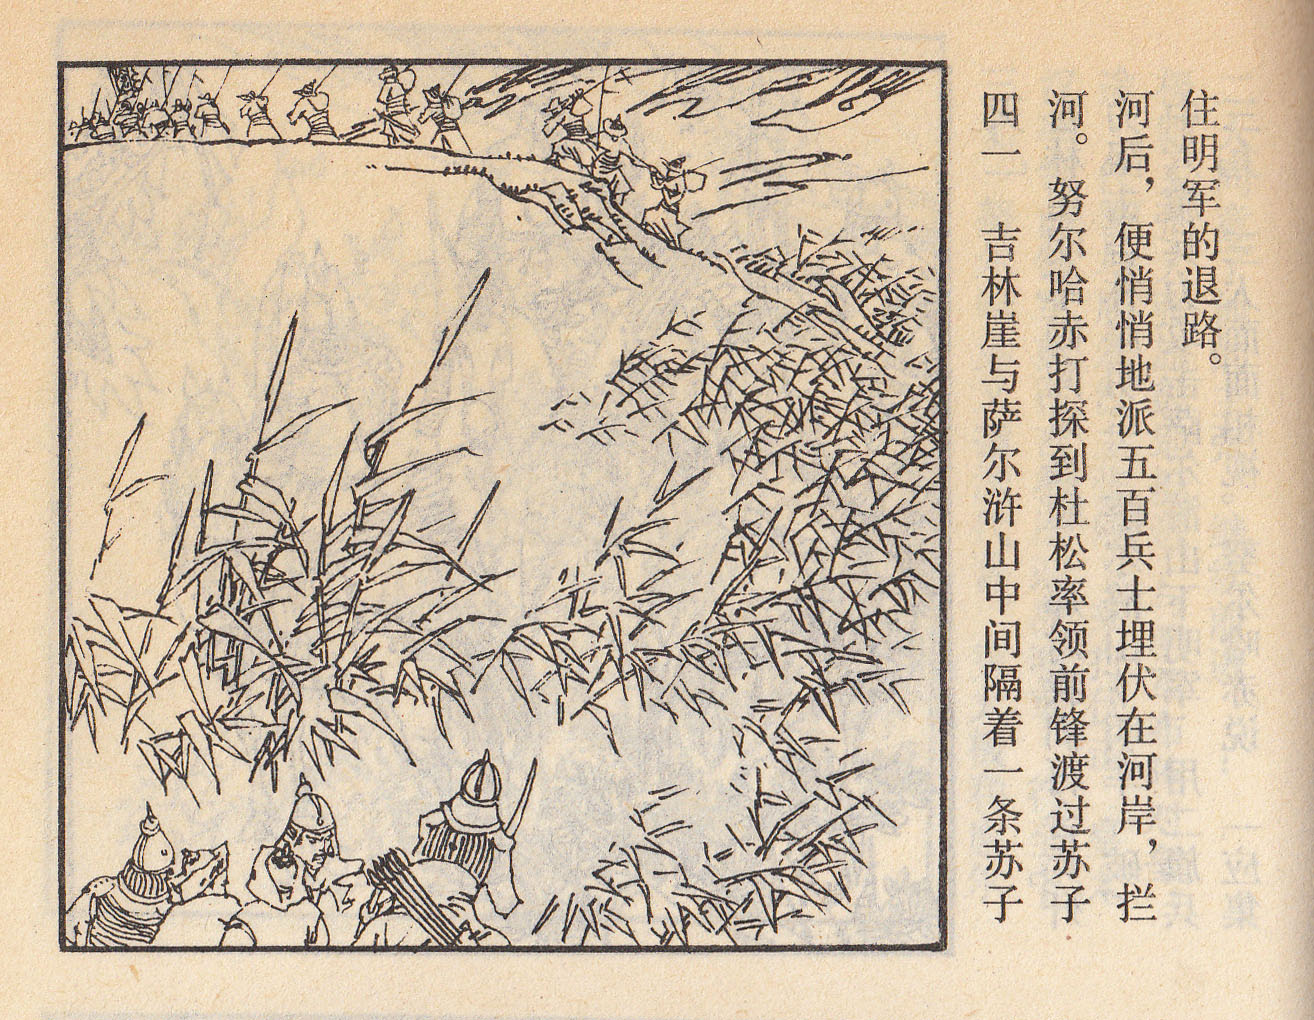 四一 吉林崖与萨尔浒山中间隔着一条苏子
河。努尔哈赤打探到杜松率领前锋渡过苏子
河后，便悄悄地派五百兵士埋伏在河岸，拦
住明军的退路。